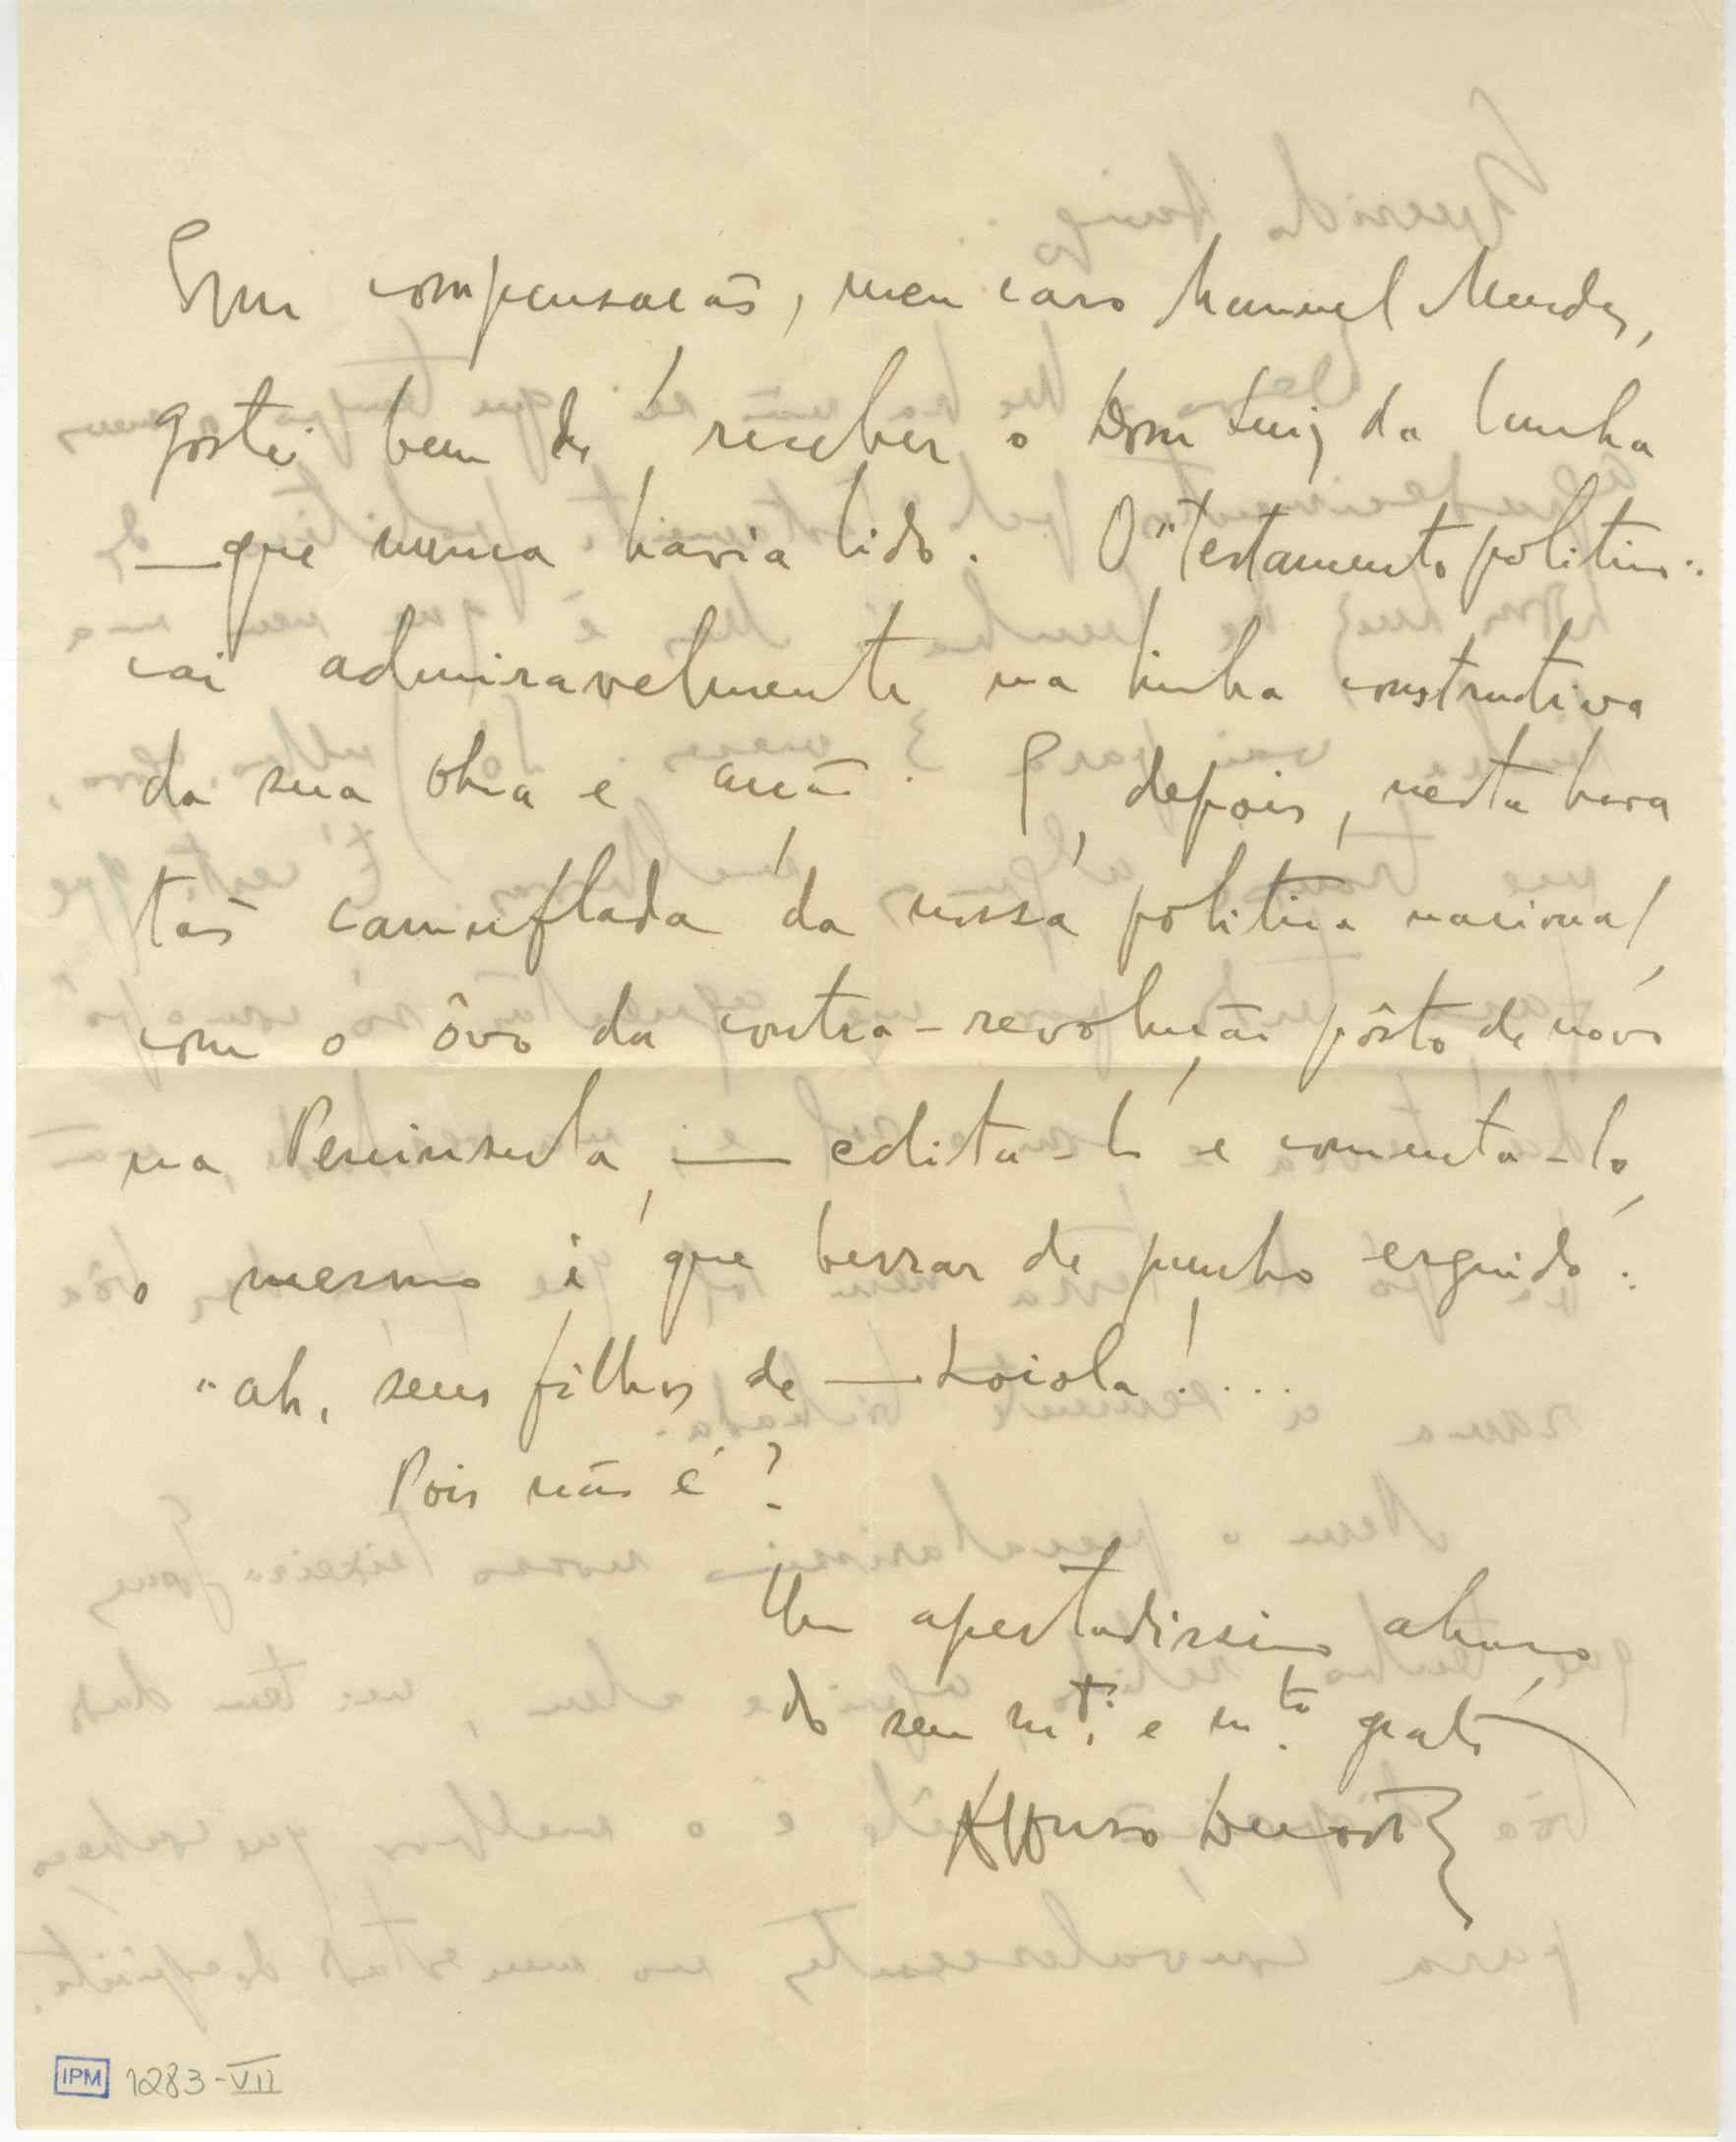 Em compensação, meu caro Manuel Mendes,
gostei bem de receber o Dom Luiz da Cunha
— que nunca havia lido. O "Testamento politico"
cai admiravelmente na linha constructiva
da sua obra e acção. E, depois, nesta hora
tão camuflada da nossa politica nacional,
com o ôvo da contra-revolução pôsto de nôvo
na Peninsula, — edita-lo e comenta-lo,
o mesmo é que berrar de punho erguido:
"ah, seus filhos de — Loiola!...
Pois não é?
Um apertadissimo abraço
do seu m.to e m.to grato
Affonso
IPM 1283-VII